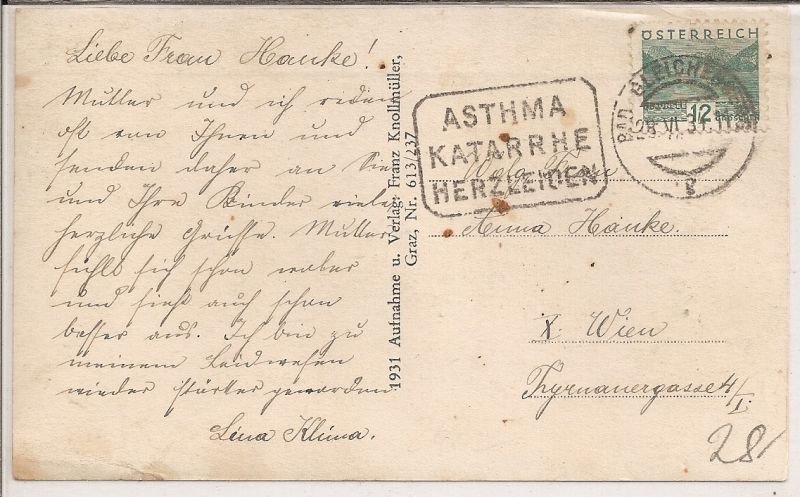 Liebe Frau Hanke!
Mutter und ich reden
oft von Ihnen und
senden daher an Sie
und Ihre Kinder viele
herzliche Grüsse. Mutter
fühlt sich schon wohler
und sieht auch schon
besser aus. Ich bin zu
meinem Leidwesen
wieder stärker geworden
Lina Klima.
1931 Aufnahme u. Verlag: Franz Knollmüller,
Graz, Nr. 613/237
ASTHMA
KATARRHE
HERZLEIDEN
ÖSTERREICH
12
BAD GLEICHENBERG
Frau
Anna Hanke.
X. Wien
4/I.
28